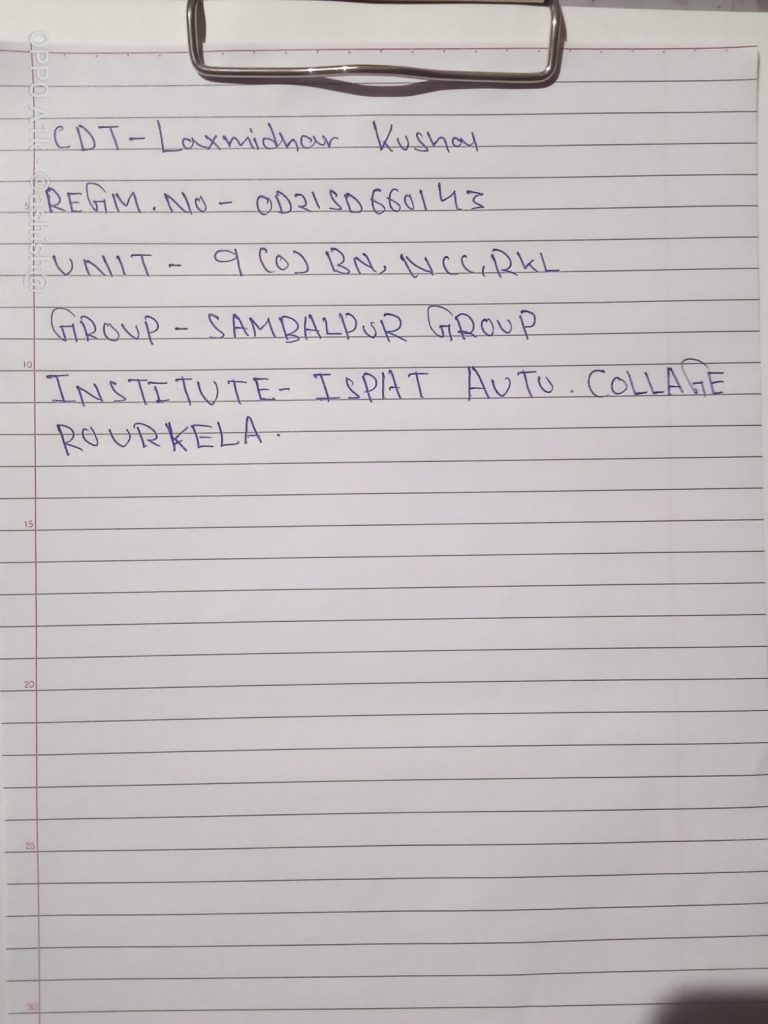 CDT - Laxmidhar Kushal
REGM. NO - OD21SD660143
UNIT - 9 (O) BN, NCC, RKL
GROUP - SAMBALPUR GROUP
INSTITUTE - ISPAT AUTO. COLLAGE
ROURKELA.
5
10
15
20
25
30
OPPO A1k @ashish@